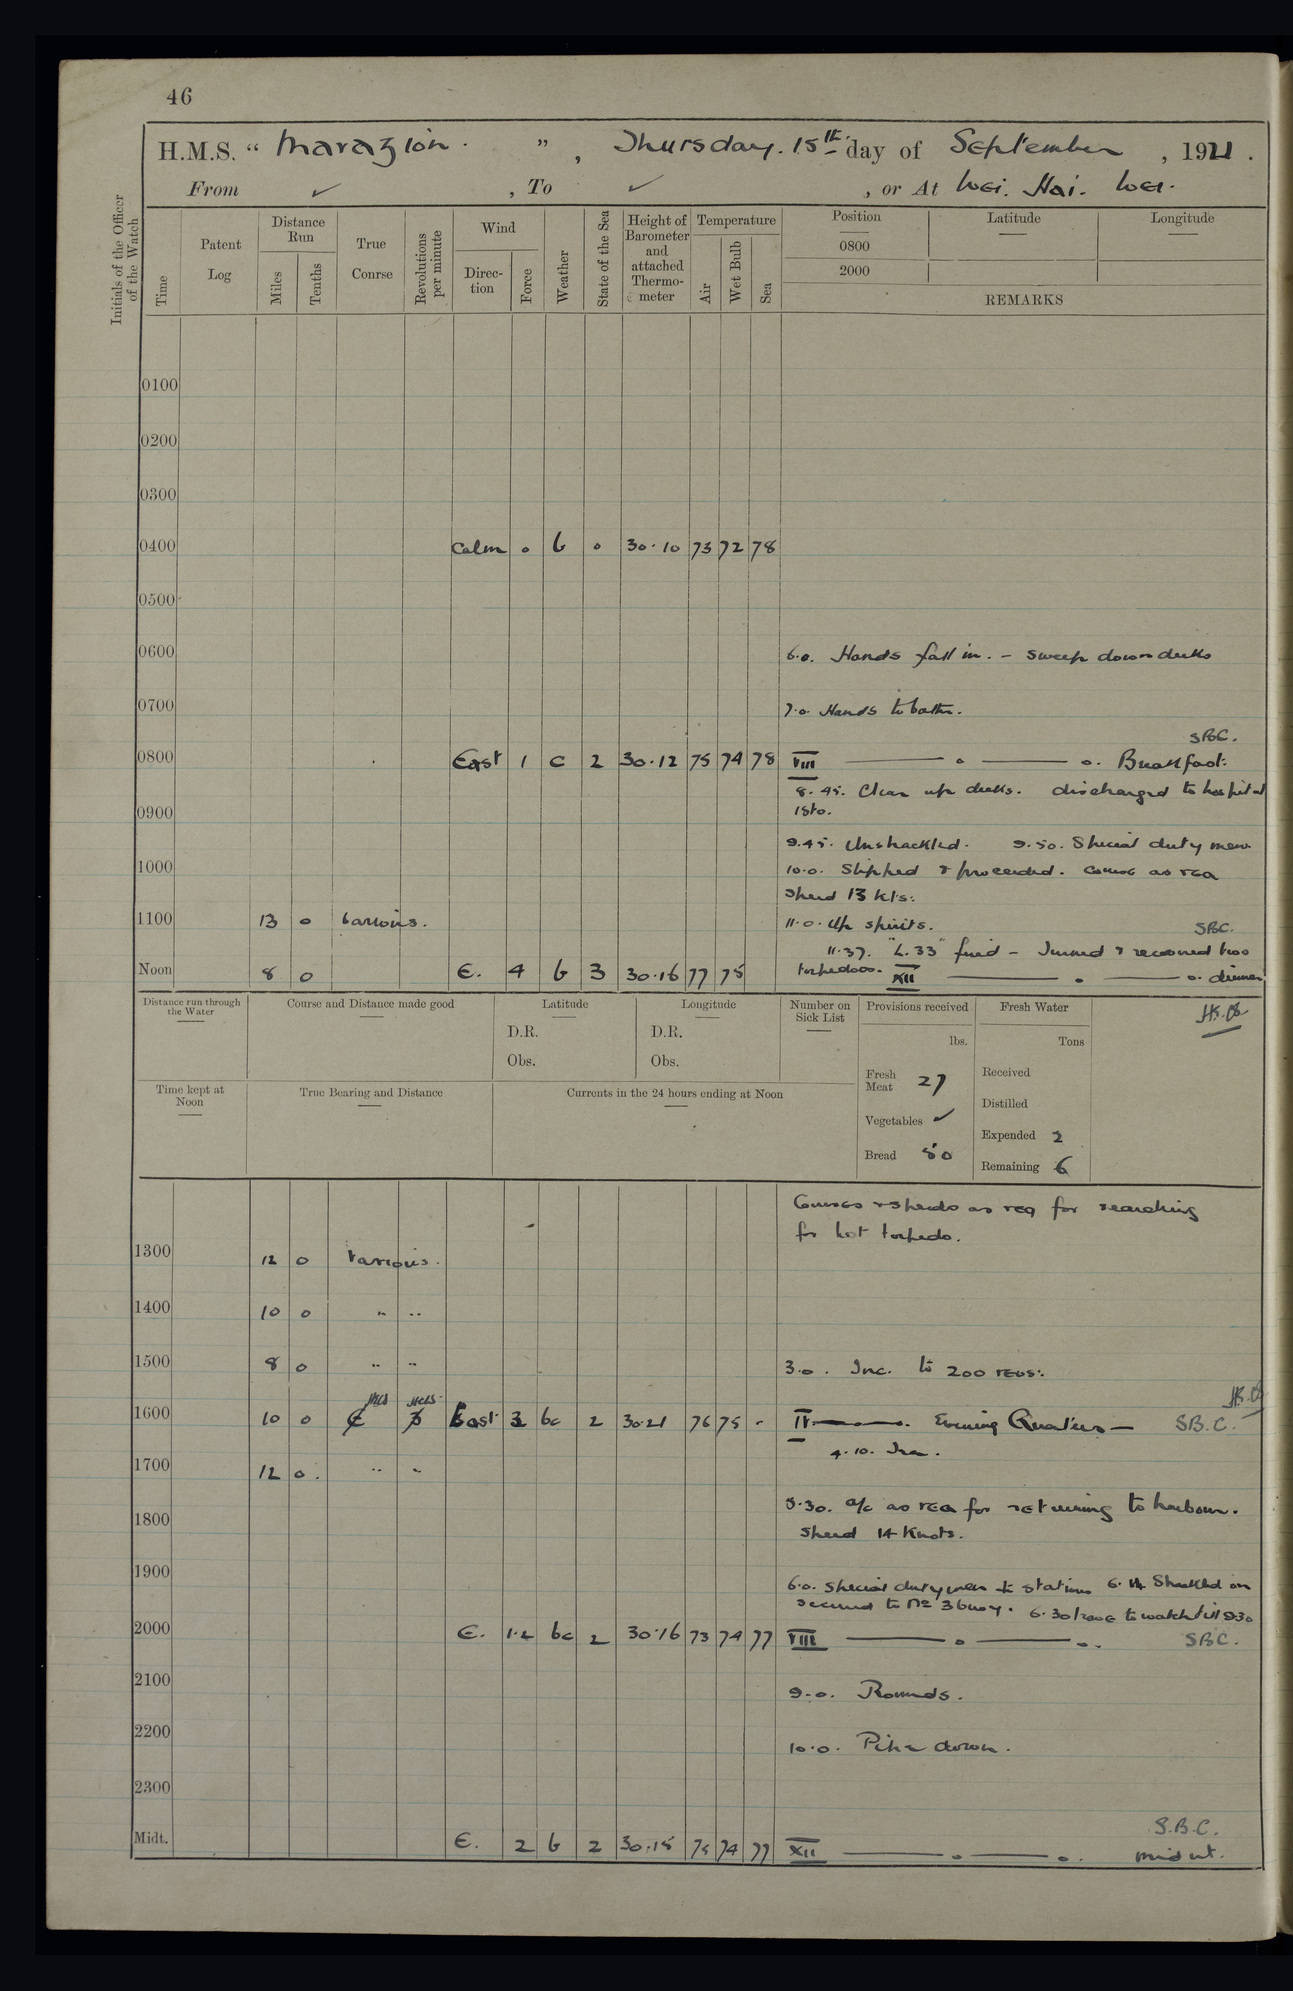 46
H.M.S. " Marazion. ", Thursday. 15th day of September, 1921.
From ✓, To ✓, or At Wei. Hai. Wei.
Initials of the Officer of the Watch
Time
Patent Log
Distance Run
Miles
Tenths
True Course
Revolutions per minute
Wind
Direction
Force
Weather
State of the Sea
Height of Barometer and attached Thermometer
Temperature
Air
Wet Bulb
Sea
Position Latitude Longitude
0800
2000
REMARKS
0100
0200
0300
0400 Calm 0 b 0 30.10 73 72 78
0500
0600 6.0. Hands fall in. – Sweep down decks
0700 7.0. Hands to bathe.
SBC.
0800 East 1 c 2 30.12 75 74 78 VIII ——— o ——— o. Breakfast.
8.45. Clear up decks. discharged to hospital
1 Sto.
0900
9.45. Unshackled. 9.50. Special duty men
1000 10.0. Slipped & proceeded. Course as req
Speed 13 kts.
1100 13 0 Various. 11.0. Up spirits. SBC.
11.37. "L.33" fired – Turned & recovered two
Noon 8 0 E. 4 b 3 30.16 77 75 torpedoes. XII ——— o ——— o. dinner
Distance run through the Water
Course and Distance made good
Latitude
D.R.
Obs.
Longitude
D.R.
Obs.
Number on Sick List
Provisions received
lbs.
Fresh Meat 27
Vegetables ✓
Bread 50
Fresh Water
Tons
Received
Distilled
Expended 2
Remaining 6
Time kept at Noon
True Bearing and Distance
Currents in the 24 hours ending at Noon
Courses & speeds as req for searching
for lost torpedo.
1300 12 0 Various.
1400 10 0 " "
1500 8 0 " " 3.0. Inc. to 200 revs.
1600 10 0 East 3 bc 2 30.21 76 75 - IV ——— Evening Quarters — SB.C.
4.10.
1700 12 0. " "
5.30. a/c as req for returning to harbour.
1800 Speed 14 Knots.
1900
6.0. Special duty men to stations 6.14 Shackled on
secured to No 3 buoy. 6.30 leave to watch till 9.30
2000 E. 1.2 bc 2 30.16 73 74 77 VIII ——— o ——— o. SBC.
2100 9.0. Rounds.
2200 10.0. Pipe down.
2300
S.B.C.
Midt. E. 2 b 2 30.15 75 74 77 XII ——— o ——— o. midnt.